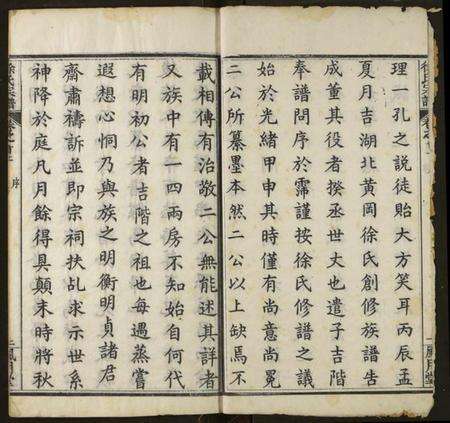 理一孔之說徒貽大方笑耳丙辰孟
夏月吉湖北黃岡徐氏創修族譜告
成董其役者揆丞世大也遣子吉階
奉譜問序於霈謹按徐氏修譜之議
始於光緒甲申其時僅有尚意尚冕
二公所纂墨本然二公以上缺焉不
載相傳有治敬二公無能述其詳者
又族中有一四兩房不知始自何代
有明初公者吉階之祖也每遇蒸嘗
遐想心恫乃與族之明衡明貞諸君
齋肅禱訴並即宗祠扶乩求示世系
神降於庭凡月餘得具顛末時將秋
序